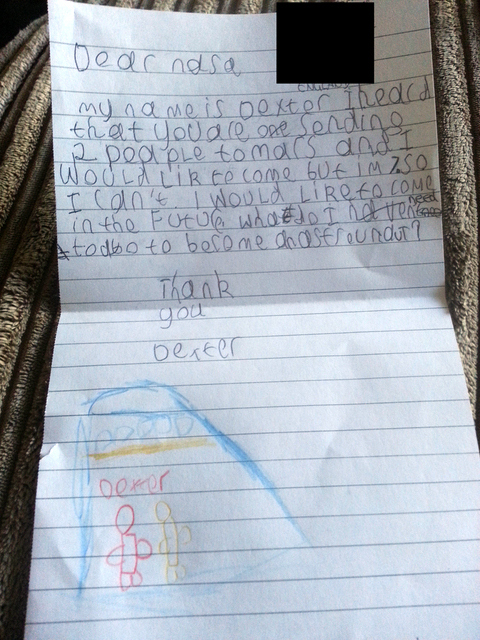 Dear nasa
ENGLAND
my name is Dexter I heard
that you are sending
2 people to mars and I
would like to come but im 7. so
I can't I would like to come
in the future what do I need
to do to become anastrounaut?
Thank
you
Dexter
Dexter